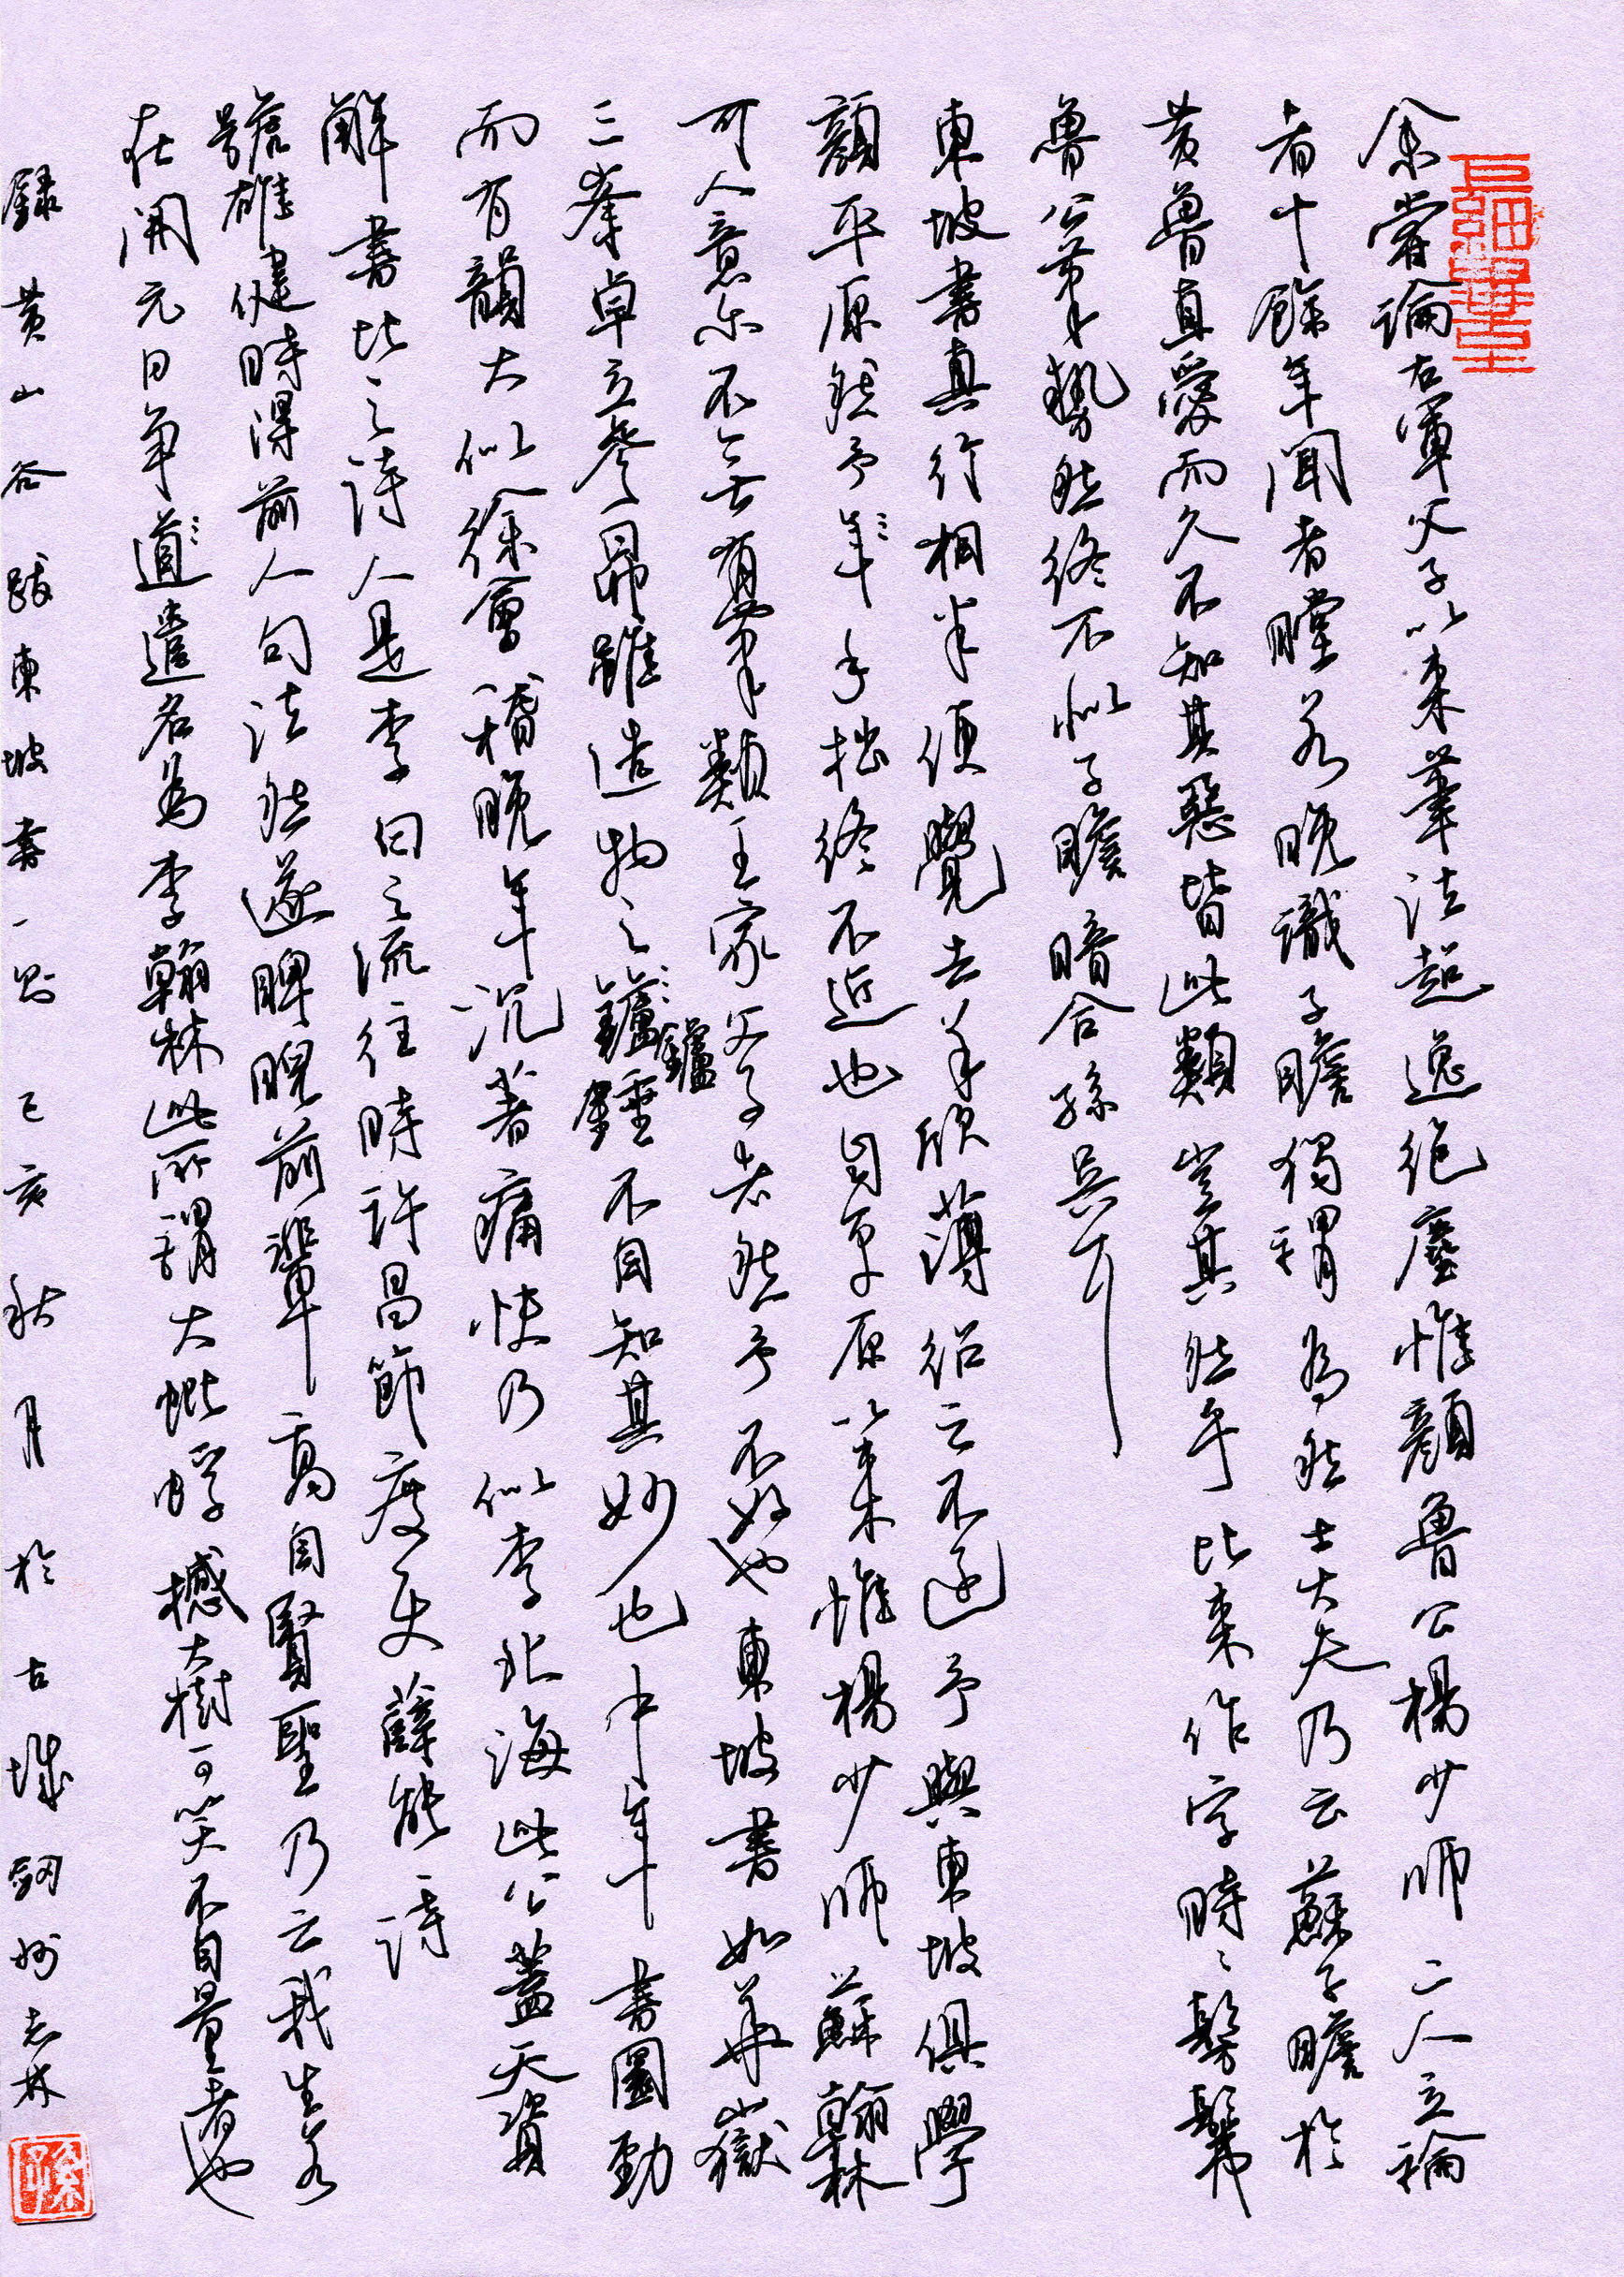 余嘗論右軍父子以來筆法超逸絕塵惟顏魯公楊少師二人立論
者十餘年聞者瞠若晚識子瞻獨謂為然士大夫乃云蘇子瞻於
黃魯直愛而久不知其惡皆此類豈其然乎比來作字時〻髣髴
魯公筆勢然終不似子瞻暗合孫吳耳
東坡書真行相半便覺去羊欣薄紹之不遠予與東坡俱學
顏平原然予手拙終不近也自平原以來惟楊少師蘇翰林
可人意爾不無有筆類王家父子者然予不好也東坡書如華嶽
三峯卓立參昴雖造物之鑪錘不自知其妙也中年書圓勁
而有韻大似徐會稽晚年沉著痛快乃似李北海此公蓋天資
解書比之詩人是李白之流往時許昌節度使薛能詩
號雄健時得前人句法然遂睥睨前輩高自賢聖乃云我生若
在開元日爭遣名為李翰林此所謂大蚍蜉撼大樹可笑不自量者也
錄黃山谷跋東坡書一則己亥秋月於古城荊州志林